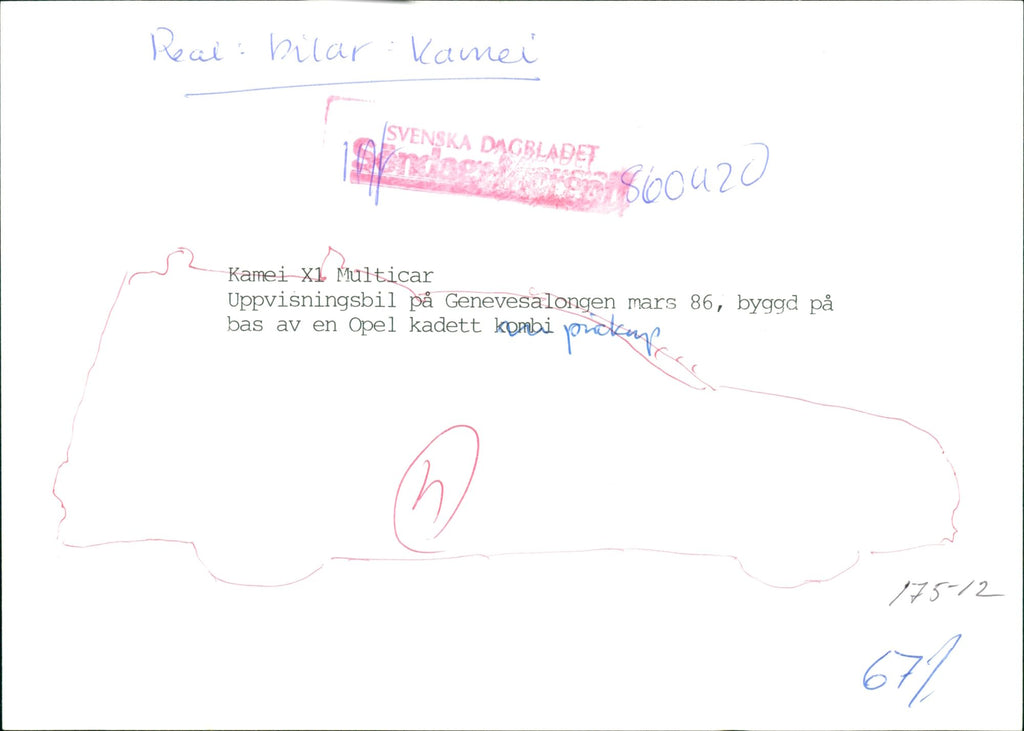 Real: bilar: Kamei
SVENSKA DAGBLADET
860420
Kamei X1 Multicar
Uppvisningsbil på Genevesalongen mars 86, byggd på
bas av en Opel kadett kombi pickup
175-12
67%